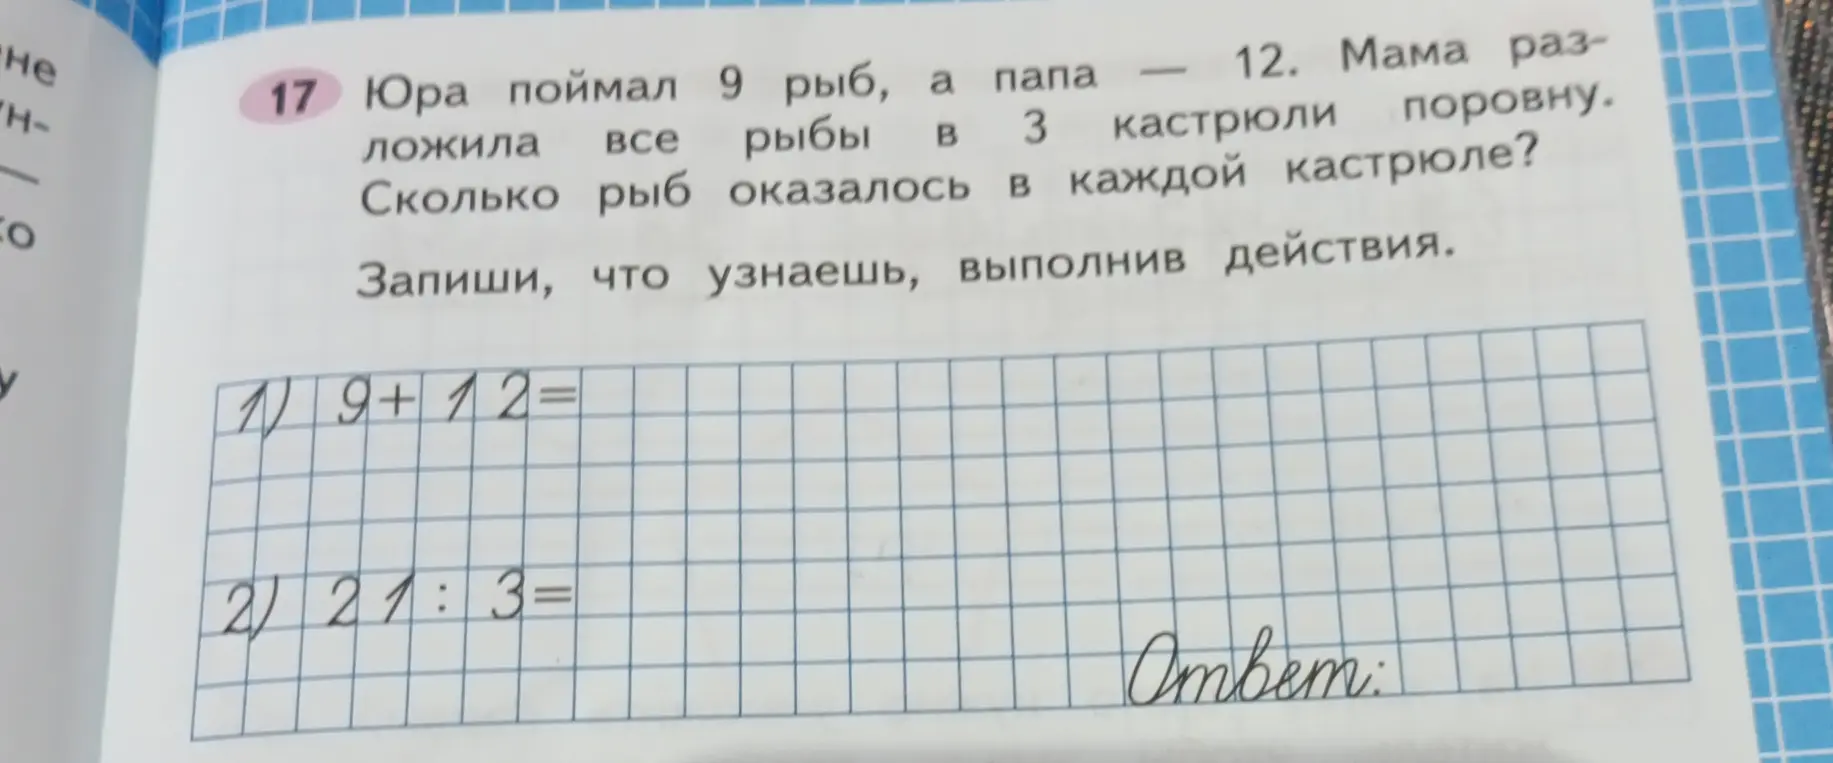 не
н-
о
у
17 Юра поймал 9 рыб, а папа — 12. Мама раз-
ложила все рыбы в 3 кастрюли поровну.
Сколько рыб оказалось в каждой кастрюле?
Запиши, что узнаешь, выполнив действия.
1) 9+12=
2) 21:3=
Ответ: